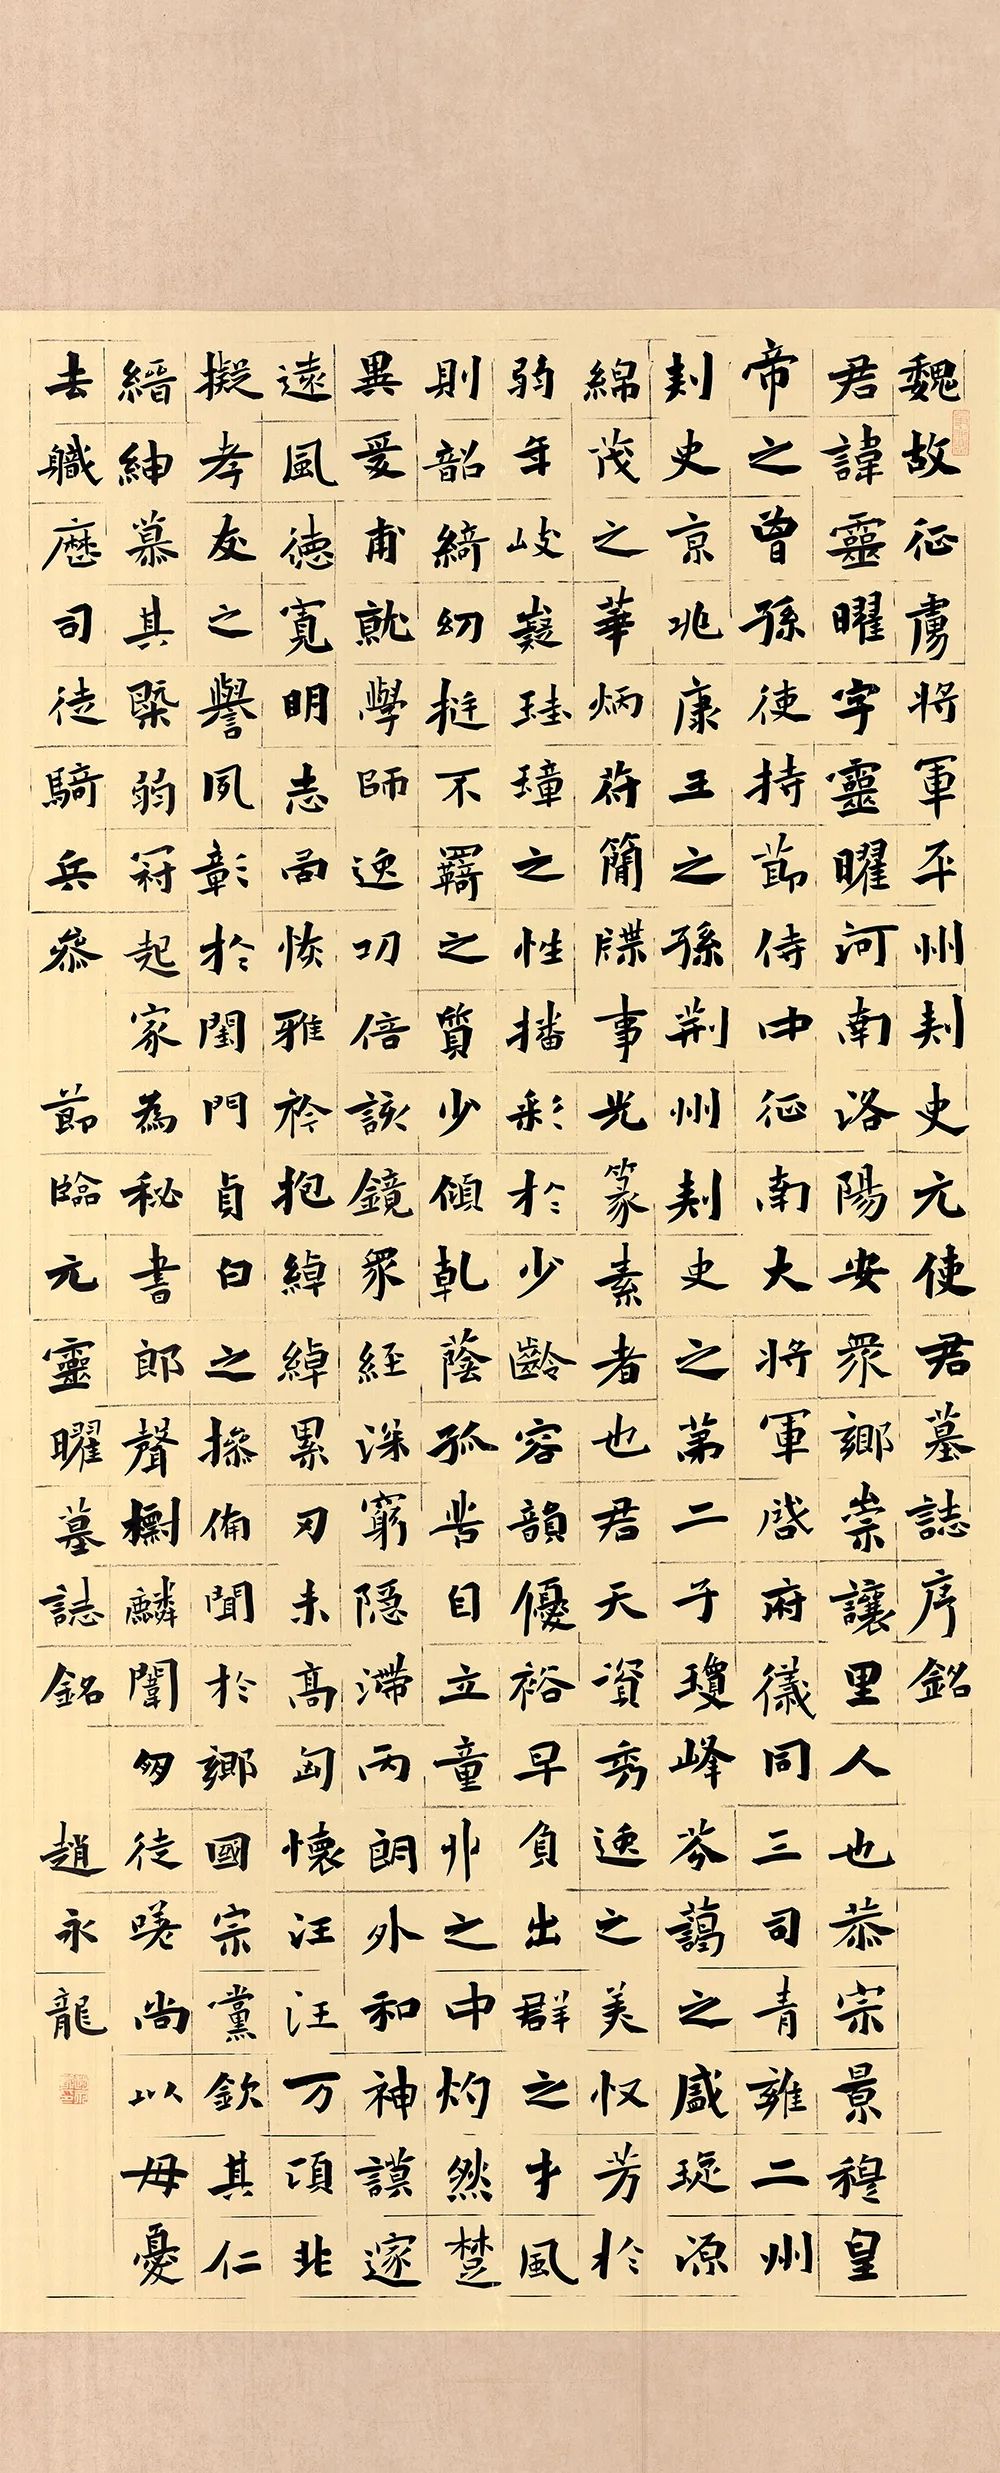 魏故征虜將軍平州刺史元使君墓誌序銘
君諱靈曜字靈曜河南洛陽安眾鄉崇讓里人也恭宗景穆皇
帝之曾孫使持節侍中征南大將軍啓府儀同三司青雍二州
刺史京兆康王之孫荊州刺史之第二子瓊峰芬藹之盛琁源
綿茂之華炳蔚簡牒事光篆素者也君天資秀逸之美收芳於
弱年岐嶷珪璋之性播彩於少齡容韻優裕早負出群之才風
則韶綺幼挺不羈之質少傾乾蔭孤苦自立童丱之中灼然楚
異爰甫就學師逸功倍該鏡眾經深窮隱滯丙朗外和神謨邃
遠風德寬明志局恢雅衿抱綽綽累刃未高匈懷汪汪万頃非
擬孝友之譽夙彰於閨門貞白之操備聞於鄉國宗黨欽其仁
縉紳慕其槩弱冠起家為秘書郎聲樹麟閣匆徒嗟尚以母憂
去職歷司徒騎兵參
節臨元靈曜墓誌銘
趙永龍